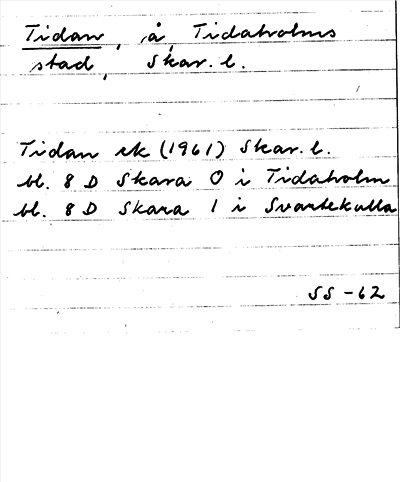 Tidan, å, Tidaholms
stad, Skar. l.
Tidan ek (1961) Skar. l.
bl. 8 D Skara O i Tidaholm
bl. 8 D Skara 1 i Svartekulla
SS -62